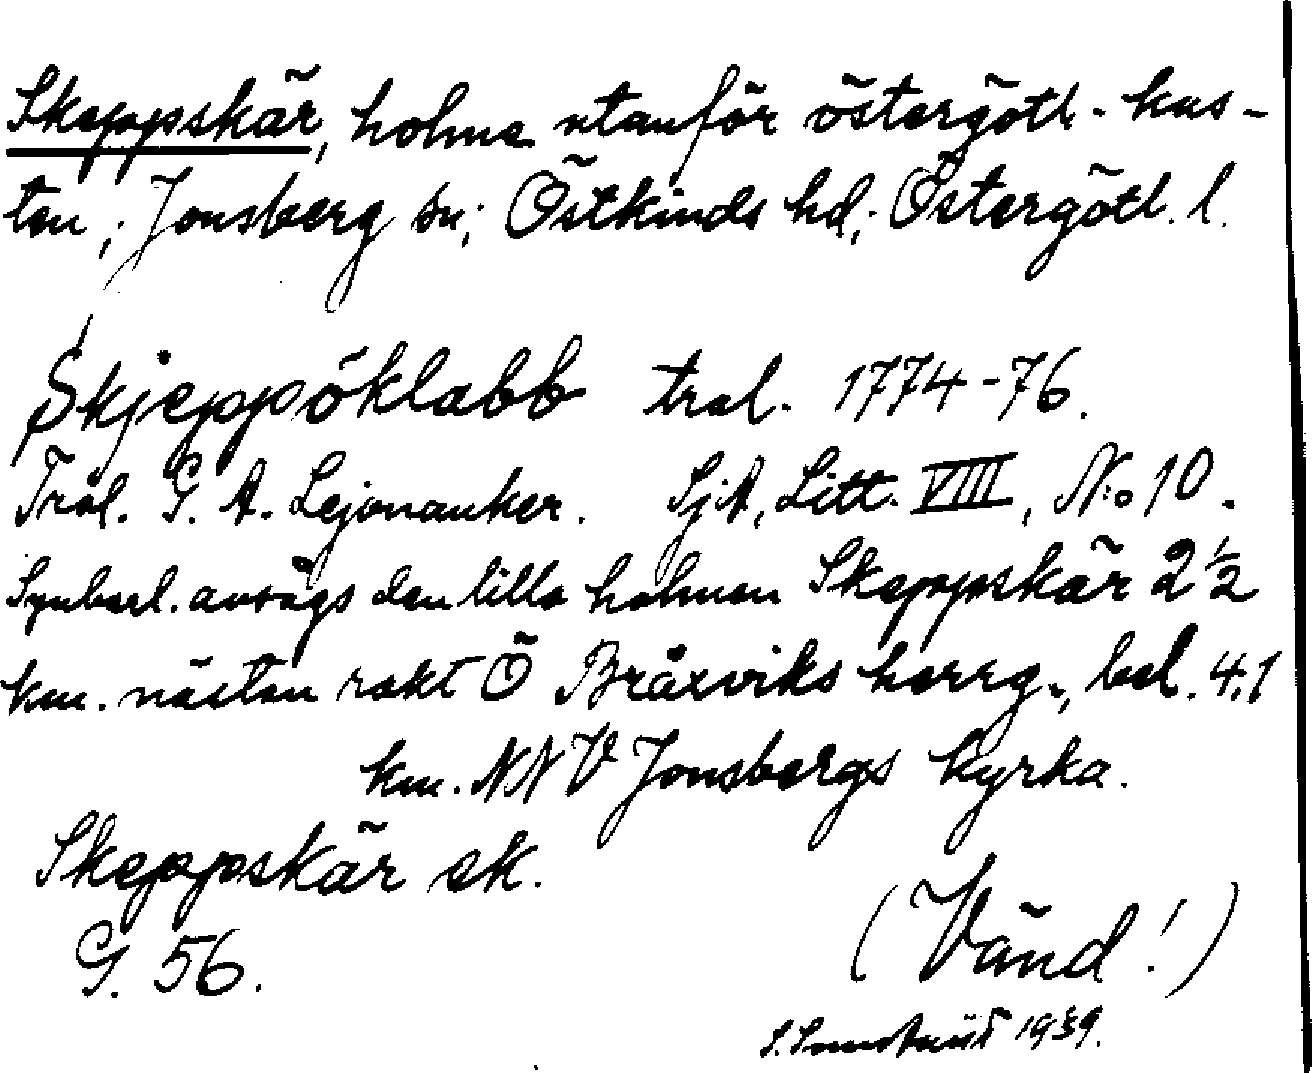 Skeppskär, holme utanför östergötl. kus-
ten; Jonsberg sn; Östkinds hd; Östergötl. l.
Skjeppöklabb trol. 1774-76.
Trol. G. A. Lejonanker. SjA, Litt. VIII, No 10.
Synbarl. avsågs den lilla holmen Skeppskär 2 1/2
km. nästan rakt Ö Bråxviks herrg., bel. 4,1
km. NNV Jonsbergs kyrka.
Skeppskär ek.
G. 56.
(Vänd!)
1939.